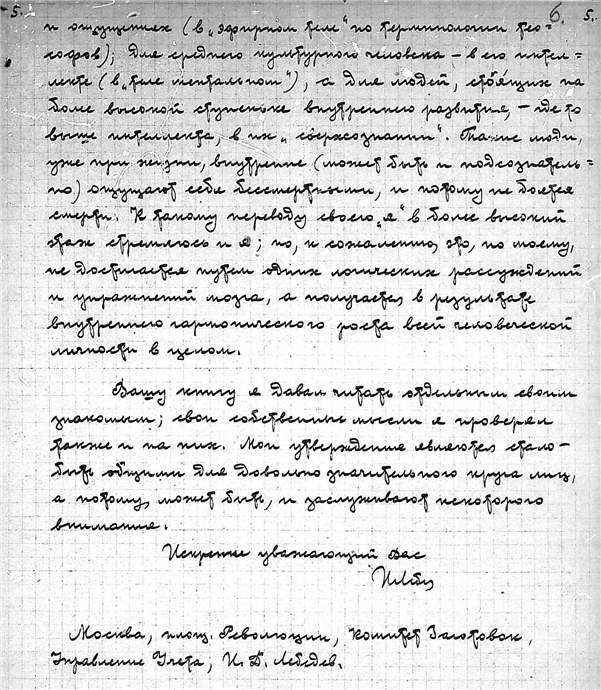 - 5. 6. 5.
и ощущениях (в „эфирном теле“ по терминологии тео-
софов); для среднего культурного человека – в его интел-
лекте (в „теле ментальном“), а для людей, стоящих на
более высокой ступеньке внутреннего развития, – где то
выше интеллекта, в их „сверхсознании“. Такие люди,
уже при жизни, внутренне (может быть и подсознатель-
но) ощущают себя бессмертными, и потому не боятся
смерти. К такому переводу своего „я“ в более высокий
этаж стремлюсь и я; но, к сожалению, это, по моему,
не достигается путем одних логических рассуждений
и упражнений мозга, а получается в результате
внутреннего гармонического роста всей человеческой
личности в целом.
Вашу книгу я давал читать отдельным своим
знакомым; свои собственные мысли я проверял
также и на них. Мои утверждения являются стало-
быть общими для довольно значительного круга лиц,
а потому, может быть, и заслуживают некоторого
внимания.
Искренне уважающий Вас
ИЛеб
Москва, площ. Революции, Комитет Заготовок,
Управление Учета, И. Д. Лебедев.